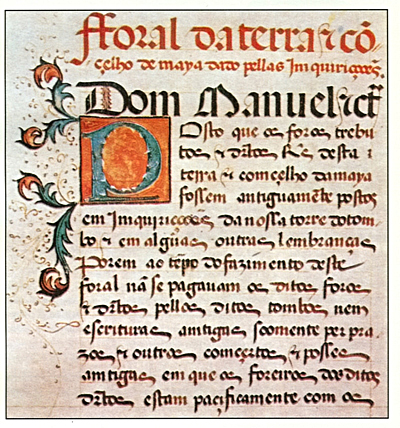 fforal da terra & cõ
celho de maya dado pellas Imquiriçoões
Dom Manuel &ct
Posto que os foros trebu
tos & dirtos Rs desta
terra & comçelho da maya
fossem antiguamẽte postos
em Imquiriçoões da nossa torre do tom
bo & em algũas outras lembranças
Porem ao tẽpo do fazimento deste
foral nã se pagauam os ditos foros
& dirtos pellos ditos tombos nem
escrituras amtigas soomente per pra
zos & outros comçertos & posses
amtigas em que os foreiros dos ditos
dirtos estam pacificamente com os